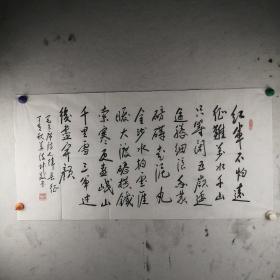 红军不怕远
征難萬水千山
只等闲五岭逶
迤腾细浪乌蒙
磅礴走泥丸
金沙水拍云崖
暖大渡桥横铁
索寒更喜岷山
千里雪三军过
後盡开颜
毛主席诗七律长征
丁亥秋